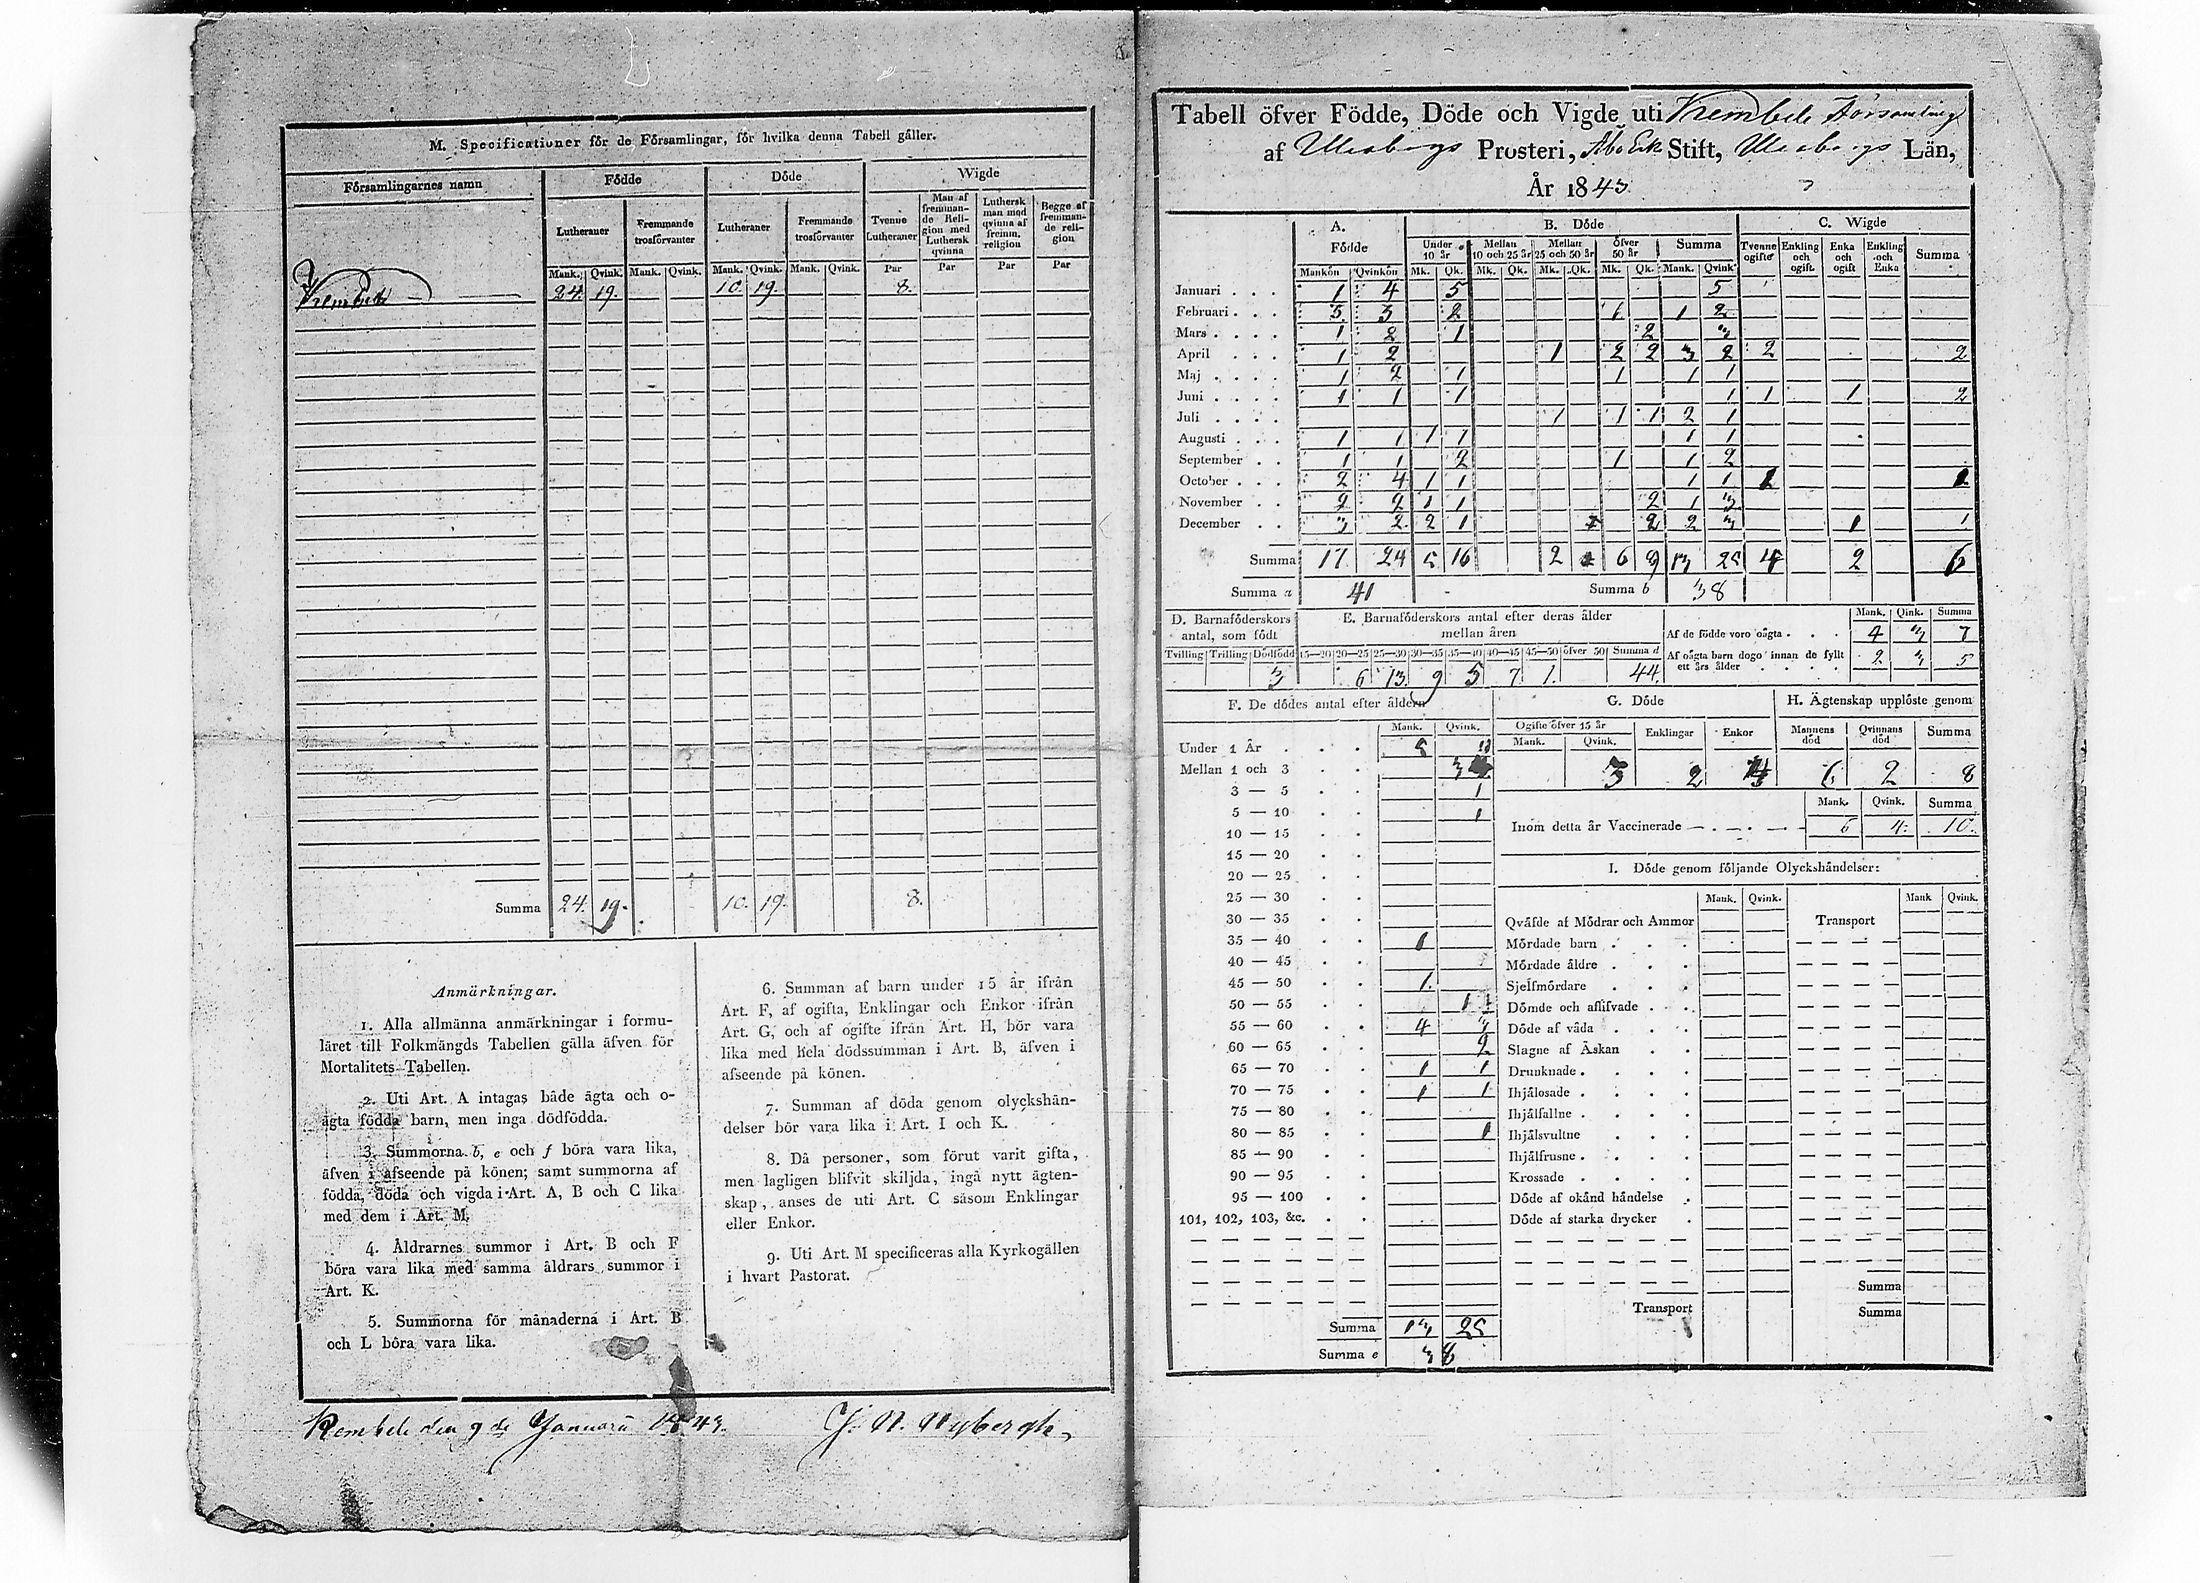 M. Specificationer för de Församlingar, för hvilka denna Tabell gäller.
Församlingarnes namn Födde Döde Wigde
Lutheraner Fremmande trosförvanter Lutheraner Fremmande trosförvanter Tvenne Lutheraner Man af fremmande Religion med Luthersk qvinna Luthersk man med qvinna af fremm. religion Begge af fremmande religion
Mank. Qvink. Mank. Qvink. Mank. Qvink. Mank. Qvink. Par Par Par Par
Kembele 24. 19. 10. 19. 8.
Summa 24. 19. 10. 19. 8.
Anmärkningar.
1. Alla allmänna anmärkningar i formu-
läret till Folkmängds Tabellen gälla äfven för
Mortalitets-Tabellen.
2. Uti Art. A intagas både ägta och o-
ägta födda barn, men inga dödfödda.
3. Summorna b, e och f böra vara lika,
äfven i afseende på könen; samt summorna af
födda, döda och vigda i Art. A, B och C lika
med dem i Art. M.
4. Åldrarnes summor i Art. B och F
böra vara lika med samma åldrars summor i
Art. K.
5. Summorna för månaderna i Art. B
och L böra vara lika.
6. Summan af barn under 15 år ifrån
Art. F, af ogifta, Enklingar och Enkor ifrån
Art. G, och af ogifte ifrån Art. H, bör vara
lika med hela dödssumman i Art. B, äfven i
afseende på könen.
7. Summan af döda genom olyckshän-
delser bör vara lika i Art. I och K.
8. Då personer, som förut varit gifta,
men lagligen blifvit skiljda, ingå nytt ägten-
skap, anses de uti Art. C såsom Enklingar
eller Enkor.
9. Uti Art. M specificeras alla Kyrkogällen
i hvart Pastorat.
Kembele den 9de Januarii 1843. J. N. Nybergh
Tabell öfver Födde, Döde och Vigde uti Kembele Församling
af Uleåborgs Prosteri, Åbo Erk Stift, Uleåborgs Län,
År 1843
A. Födde B. Döde C. Wigde
Under 10 år Mellan 10 och 25 år Mellan 25 och 50 år Öfver 50 år Summa Tvenne ogifte Enkling och ogift Enka och ogift Enkling och Enka Summa
Mankön Qvinkön Mk. Qk. Mk. Qk. Mk. Qk. Mk. Qk. Mank. Qvink
Januari 1 4 5 5
Februari 3 3 2 1 1 2
Mars 1 2 1 2 3
April 1 2 1 2 2 3 2 2 2
Maj 1 2 1 1 1 1
Juni 1 1 1 1 1 1 2
Juli 1 1 1 2 1
Augusti 1 1 1 1 1 1
September 1 1 2 1 1 2
October 2 4 1 1 1 1 1 1
November 2 2 1 1 2 1 3
December 3 2 2 1 2 2 3 1 1
Summa 17 24 5 16 2 6 9 13 25 4 2 6
Summa a 41 Summa b 38
D. Barnaföderskors antal, som födt
Tvilling Trilling Dödfödd
3
E. Barnaföderskors antal efter deras ålder mellan åren
15—20 20—25 25—30 30—35 35—40 40—45 45—50 öfver 50 Summa d
6 13 9 5 7 1. 44.
Mank. Qink. Summa
Af de födde voro oägta 4 3 7
Af oägta barn dogo innan de fyllt ett års ålder 2 3 5
F. De dödes antal efter åldern
Mank. Qvink.
Under 1 År 5
Mellan 1 och 3 3
3 — 5 1
5 — 10 1
10 — 15
15 — 20
20 — 25
25 — 30
30 — 35
35 — 40 1
40 — 45
45 — 50 1.
50 — 55 1
55 — 60 4 3
60 — 65 2
65 — 70 1 1
70 — 75 1 1
75 — 80
80 — 85 1
85 — 90
90 — 95
95 — 100
101, 102, 103, &c.
Summa 13 25
Summa e 38
G. Döde
Ogifte öfver 15 år Enklingar Enkor
Mank. Qvink.
3 2
H. Ägtenskap upplöste genom
Mannens död Qvinnans död Summa
6 2 8
Mank. Qvink. Summa
Inom detta år Vaccinerade 6 4. 10.
I. Döde genom följande Olyckshändelser:
Mank. Qvink. Mank Qvink.
Qväfde af Mödrar och Ammor Transport
Mördade barn
Mördade äldre
Sjelfmördare
Dömde och aflifvade
Döde af våda
Slagne af Åskan
Drunknade
Ihjälosade
Ihjälfallne
Ihjälsvultne
Ihjälfrusne
Krossade
Döde af okänd händelse
Döde af starka drycker
Summa
Transport Summa